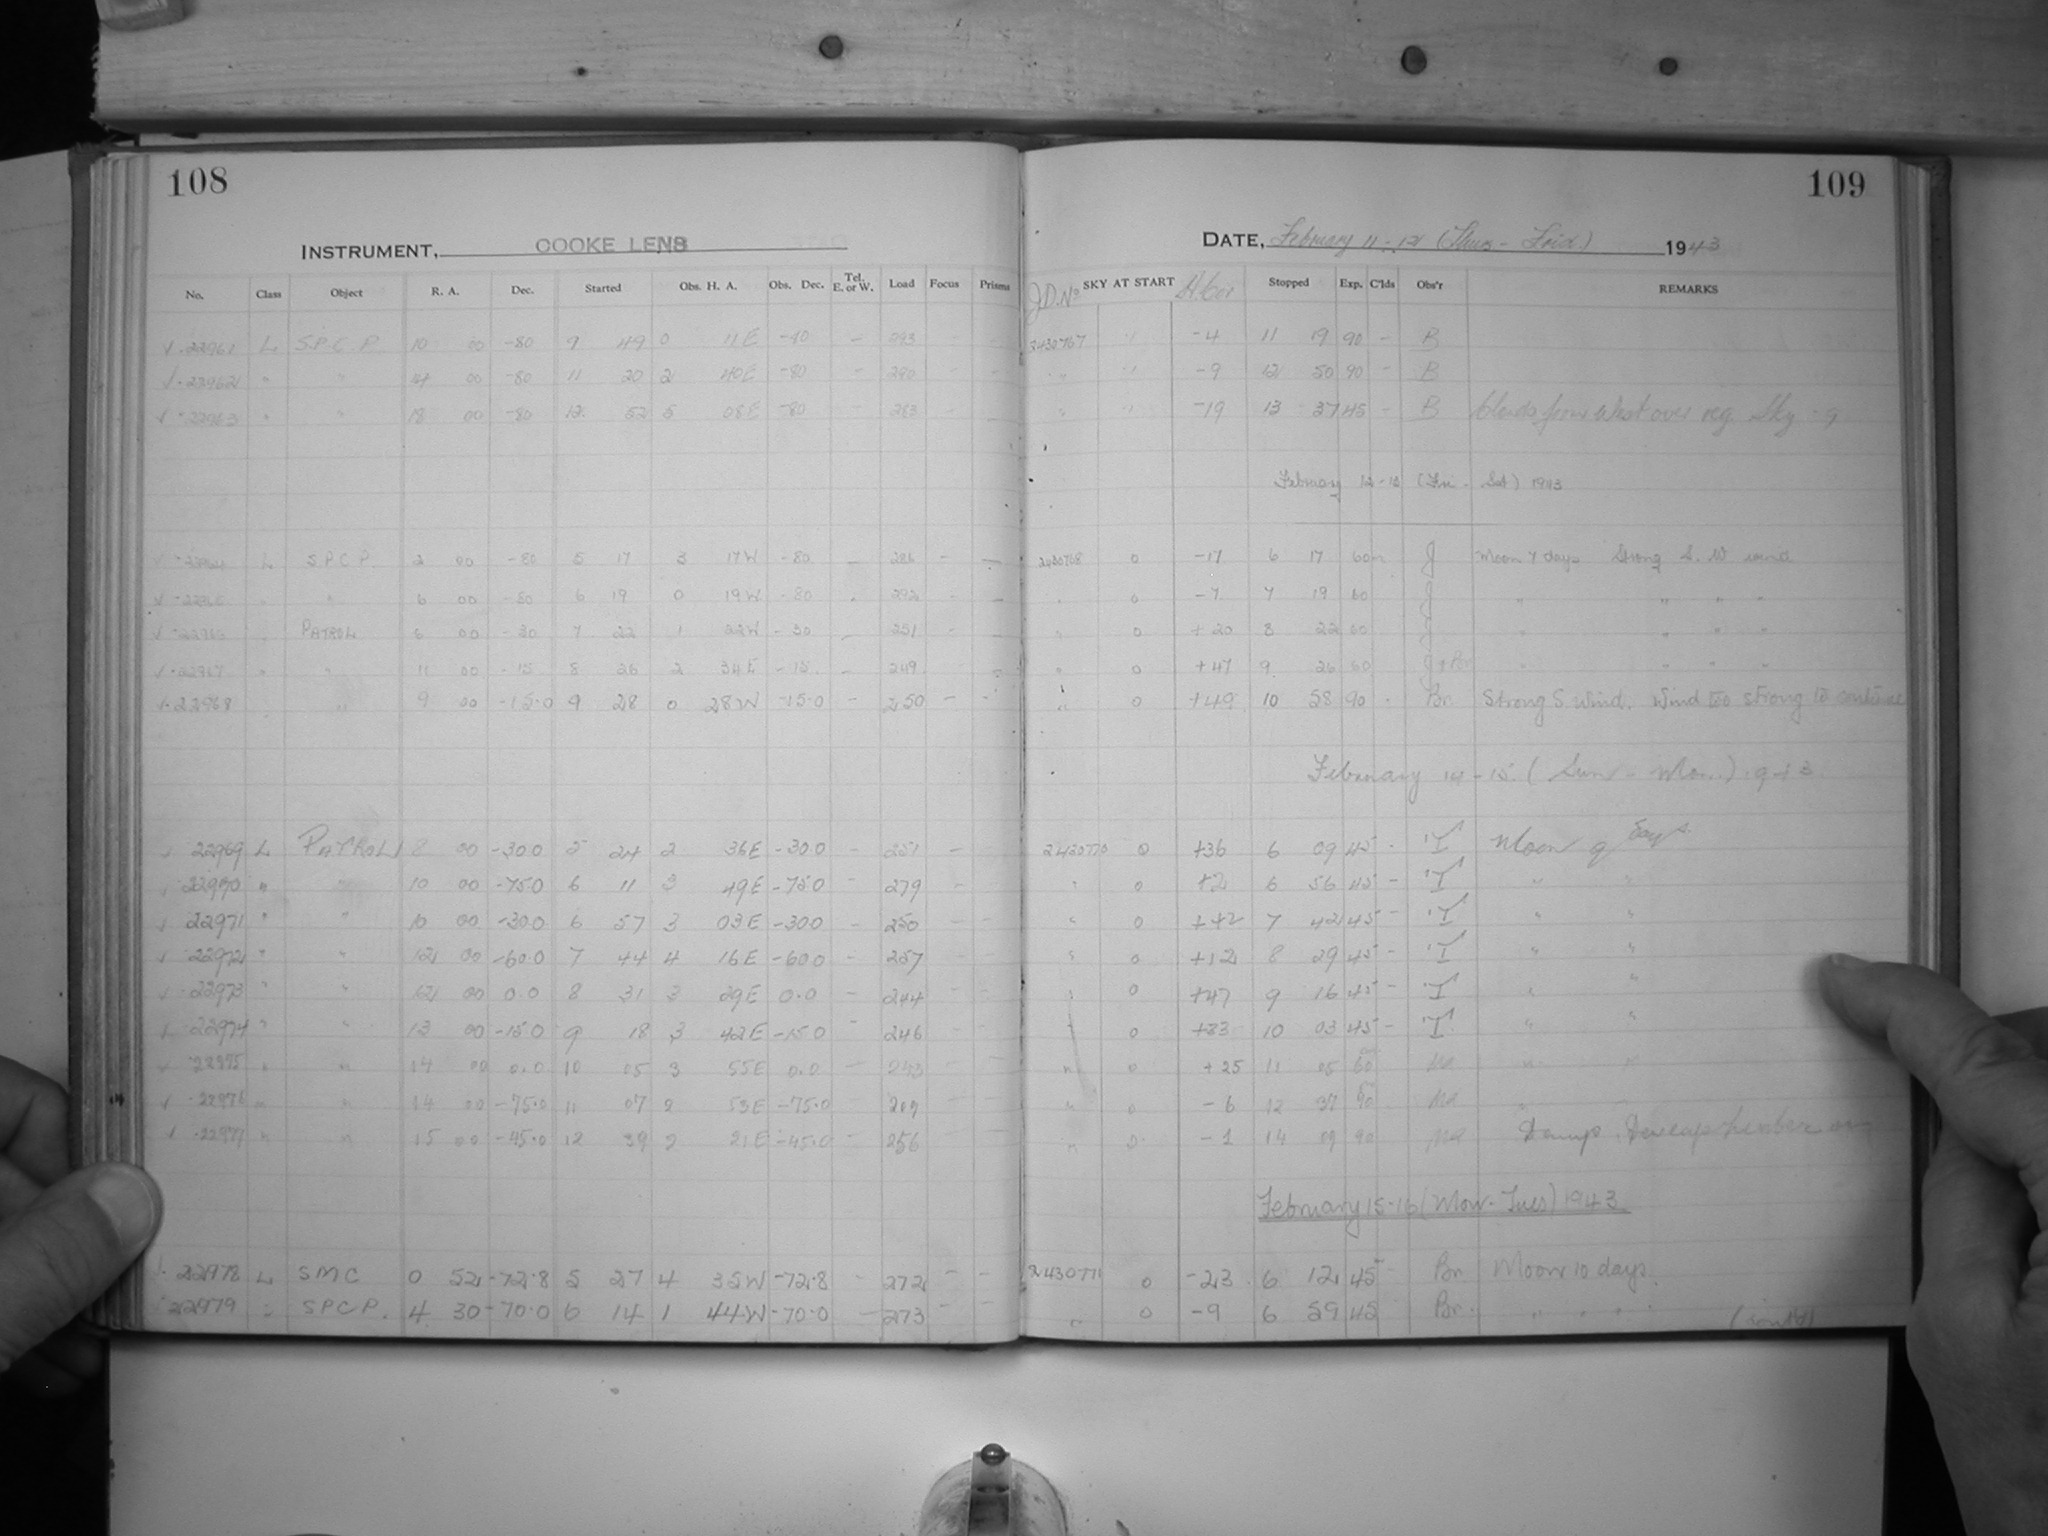 108
109
INSTRUMENT, COOKE LENS
DATE, February 11-12 (Thurs - Frid.) 1943
No. Class Object R. A. Dec. Started Obs. H. A. Obs. Dec. Tel. E. or W. Load Focus Prisms J.D. No SKY AT START Stopped Exp. C'lds Obs'r REMARKS
L S.P.C.P. 10 00 -80 9 49 0 11E 293 2430767 " -4 11 19 90 - B
" " 14 00 -80 11 20 2 40E -80 - 290 " " -9 12 50 90 - B
22963 " " 18 00 -80 12 52 5 08E -80 283 " " -19 13 37 45 - B over reg. Sky
February (Fri - Sat) 1943
L SPCP 2 00 -80 5 17 3 17W -80 - 286 - - 2430768 0 -17 6 17 60m J Moon 7 days Strong S. W wind
" 6 00 -80 6 19 0 19W -80 292 - - " 0 -7 7 19 60 J " " " "
PATROL 00 -30 7 22 1 22W -30 251 " 0 +20 8 22 60 J " " " "
22967 " " 11 00 -15 8 26 2 34E -15 - 249 " 0 +47 9 26 60 J+Br " " " "
22968 " 9 00 -15.0 9 28 0 28W -15.0 - 250 - - " 0 +49 10 58 90 - Br. Strong S. Wind. Wind too strong to continue
February 14-15 (Sun - Mon.) 1943
22969 L PATROL 8 00 -30.0 5 24 2 36E -30.0 - 251 - 2430770 0 +36 6 09 45 - Moon 9 days.
22970 " " 10 00 -75.0 6 11 3 49E -75.0 - 279 - " 0 +2 6 56 45 - " "
22971 " " 10 00 -30.0 6 57 3 03E -30.0 - 250 - - " 0 +42 7 42 45 - " "
22972 " " 12 00 -60.0 7 44 4 16E -60.0 - 257 - - " 0 +12 8 29 45 - " "
22973 " " 12 00 0.0 8 31 3 29E 0.0 - 244 - - " 0 +47 9 16 45 - " "
22974 " " 13 00 -15.0 9 18 3 42E -15.0 - 246 - - " 0 +33 10 03 45 - " "
22975 " " 14 00 0.0 10 05 3 55E 0.0 - 243 - - " 0 +25 11 05 60 " "
22976 " " 14 00 -75.0 11 07 2 53E -75.0 - " 0 -6 12 37 90 "
22977 " " 15 00 -45.0 12 39 2 21E -45.0 - 256 " 0 -1 14 09 90
February 15-16 (Mon - Tues) 1943.
22978 L SMC 0 52 -72.8 5 27 4 35W -72.8 - 272 - - 2430771 0 -23 6 12 45 - Br. Moon 10 days.
22979 " SPCP. 4 30 -70.0 6 14 1 44W -70.0 - 273 - - " 0 -9 6 59 45 Br. " " "
(cont'd)